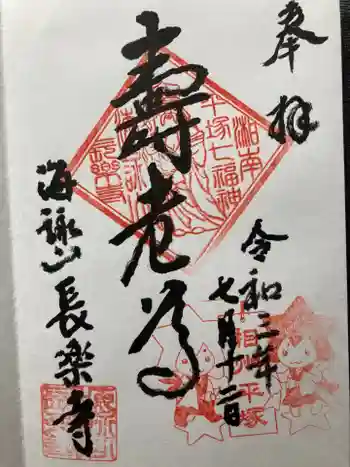 奉拝
壽老尊
湘南
平塚七福神
海詠山長樂寺
令和三年
七月十二日
湘南平塚